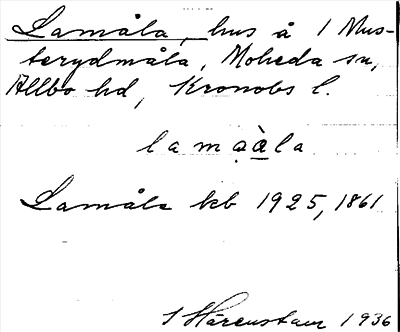 Lamåla, hus å 1 Mus-
terydmåla, Moheda sn,
Allbo hd, Kronobs l.
lamạạ̀la
Lamåla kb 1925, 1861
S Hårenstam 1936